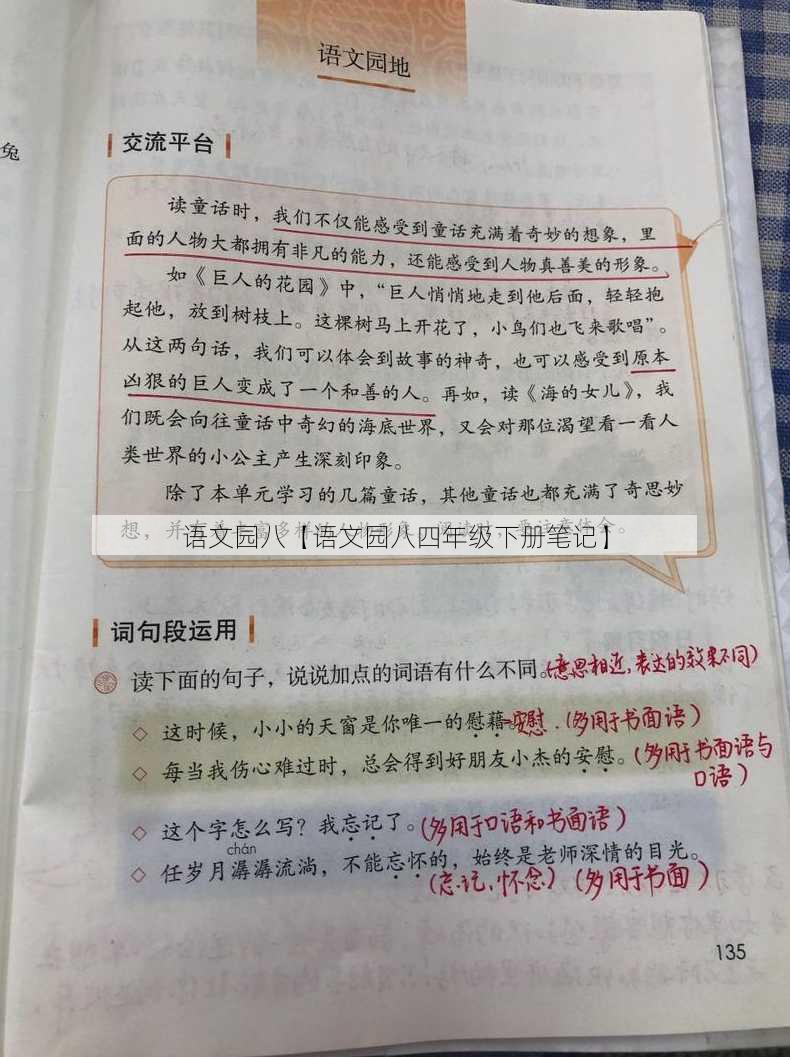 兔
语文园地
交流平台
读童话时，我们不仅能感受到童话充满着奇妙的想象，里
面的人物大都拥有非凡的能力，还能感受到人物真善美的形象。
如《巨人的花园》中，“巨人悄悄地走到他后面，轻轻抱
起他，放到树枝上。这棵树马上开花了，小鸟们也飞来歌唱”。
从这两句话，我们可以体会到故事的神奇，也可以感受到原本
凶狠的巨人变成了一个和善的人。再如，读《海的女儿》，我
们既会向往童话中奇幻的海底世界，又会对那位渴望看一看人
类世界的小公主产生深刻印象。
除了本单元学习的几篇童话，其他童话也都充满了奇思妙
想，并
语文园八【语文园八四年级下册笔记】
词句段运用
读下面的句子，说说加点的词语有什么不同。(意思相近，表达的效果不同)
◇ 这时候，小小的天窗是你唯一的慰藉。安慰.(多用于书面语)
◇ 每当我伤心难过时，总会得到好朋友小杰的安慰。(多用于书面语与
口语)
◇ 这个字怎么写？我忘记了。(多用于口语和书面语)
chán
◇ 任岁月潺潺流淌，不能忘怀的，始终是老师深情的目光。
(忘记，怀念)(多用于书面)
135